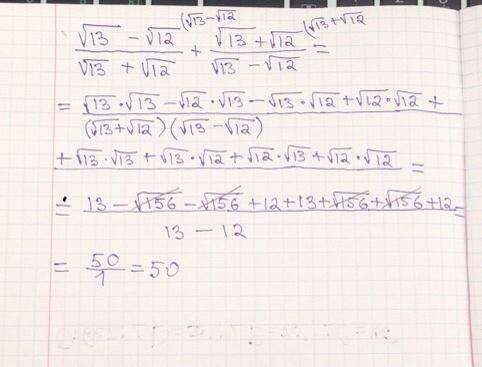 (√13 − √12 (√13 + √12
(√13 − √12)/(√13 + √12) + (√13 + √12)/(√13 − √12) =
= √13 · √13 − √12 · √13 − √13 · √12 + √12 · √12 +
(√13 + √12)(√13 − √12)
+ √13 · √13 + √13 · √12 + √12 · √13 + √12 · √12 =
= 13 − √156 − √156 + 12 + 13 + √156 + √156 + 12 =
13 − 12
= 50/1 = 50